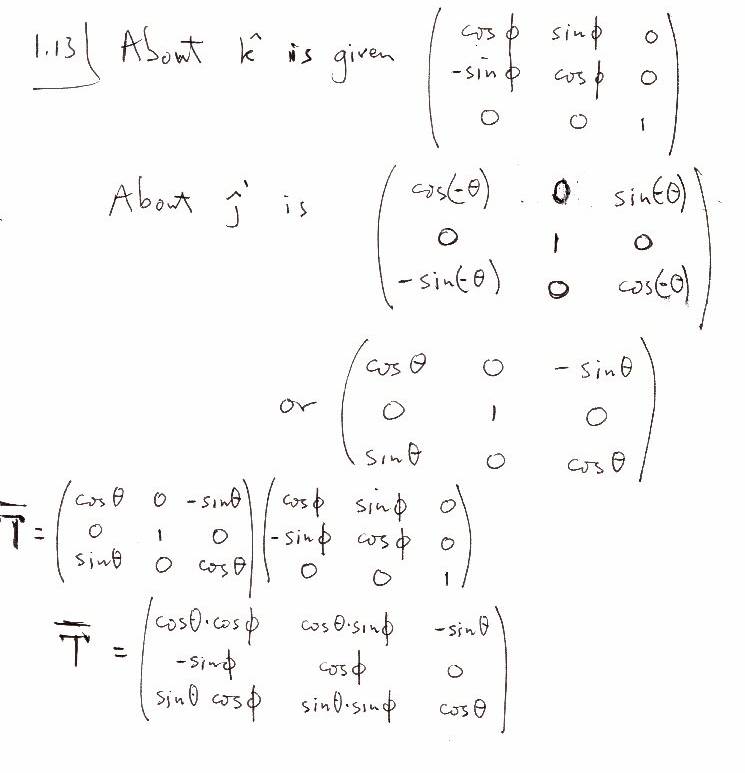 1.13) About k̂ is given ( cos ϕ sin ϕ 0
-sin ϕ cos ϕ 0
0 0 1 )
About ĵ' is ( cos(-θ) 0 sin(-θ)
0 1 0
-sin(-θ) 0 cos(-θ) )
or ( cos θ 0 - sin θ
0 1 0
sin θ 0 cos θ )
T̅ = ( cos θ 0 - sin θ ) ( cos ϕ sin ϕ 0 )
( 0 1 0 ) ( -sin ϕ cos ϕ 0 )
( sin θ 0 cos θ ) ( 0 0 1 )
T̅ = ( cos θ · cos ϕ cos θ · sin ϕ -sin θ
-sin ϕ cos ϕ 0
sin θ cos ϕ sin θ · sin ϕ cos θ )